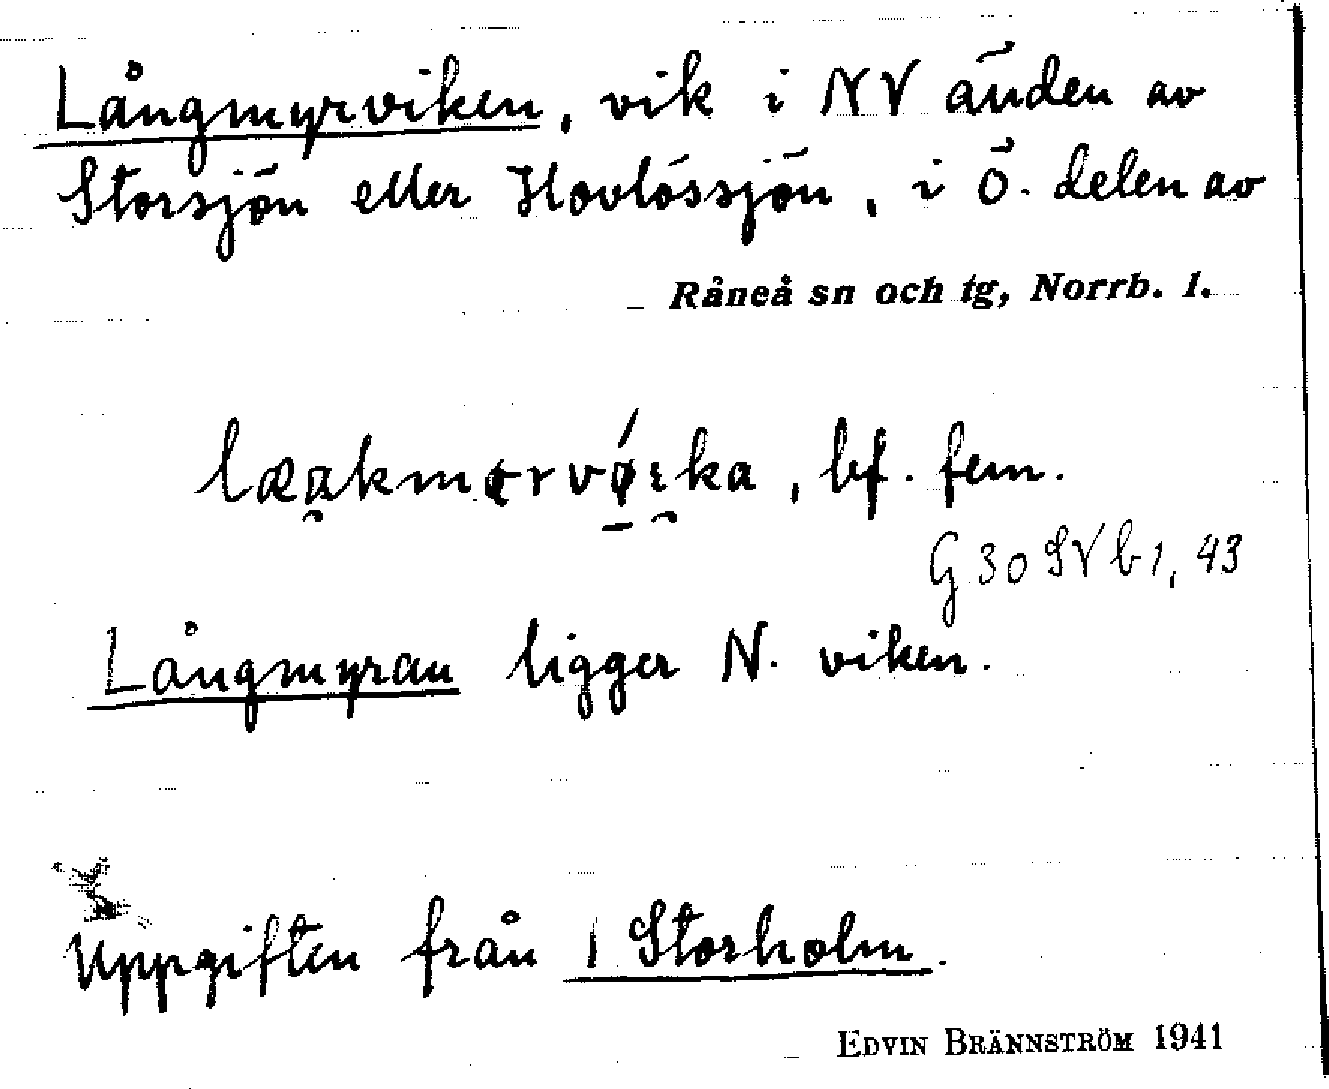 Långmyrviken, vik i NV änden av
Storsjön eller Hovlössjön, i Ö. delen av
Råneå sn och tg, Norrb. l.
bf. fem.
G 30 SV b 1, 43
Långmyran ligger N. viken.
Uppgiften från 1 Storholm.
EDVIN BRÄNNSTRÖM 1941